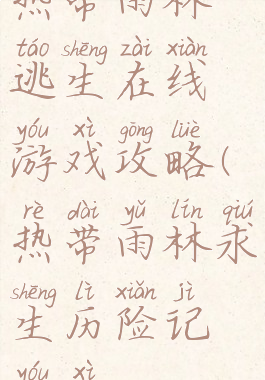 热带雨林
táo shēng zài xiàn
逃生在线
yóu xì gōng lüè
游戏攻略(
rè dài yǔ lín qiú
热带雨林求
shēng lì xiǎn jì
生历险记
yóu xì